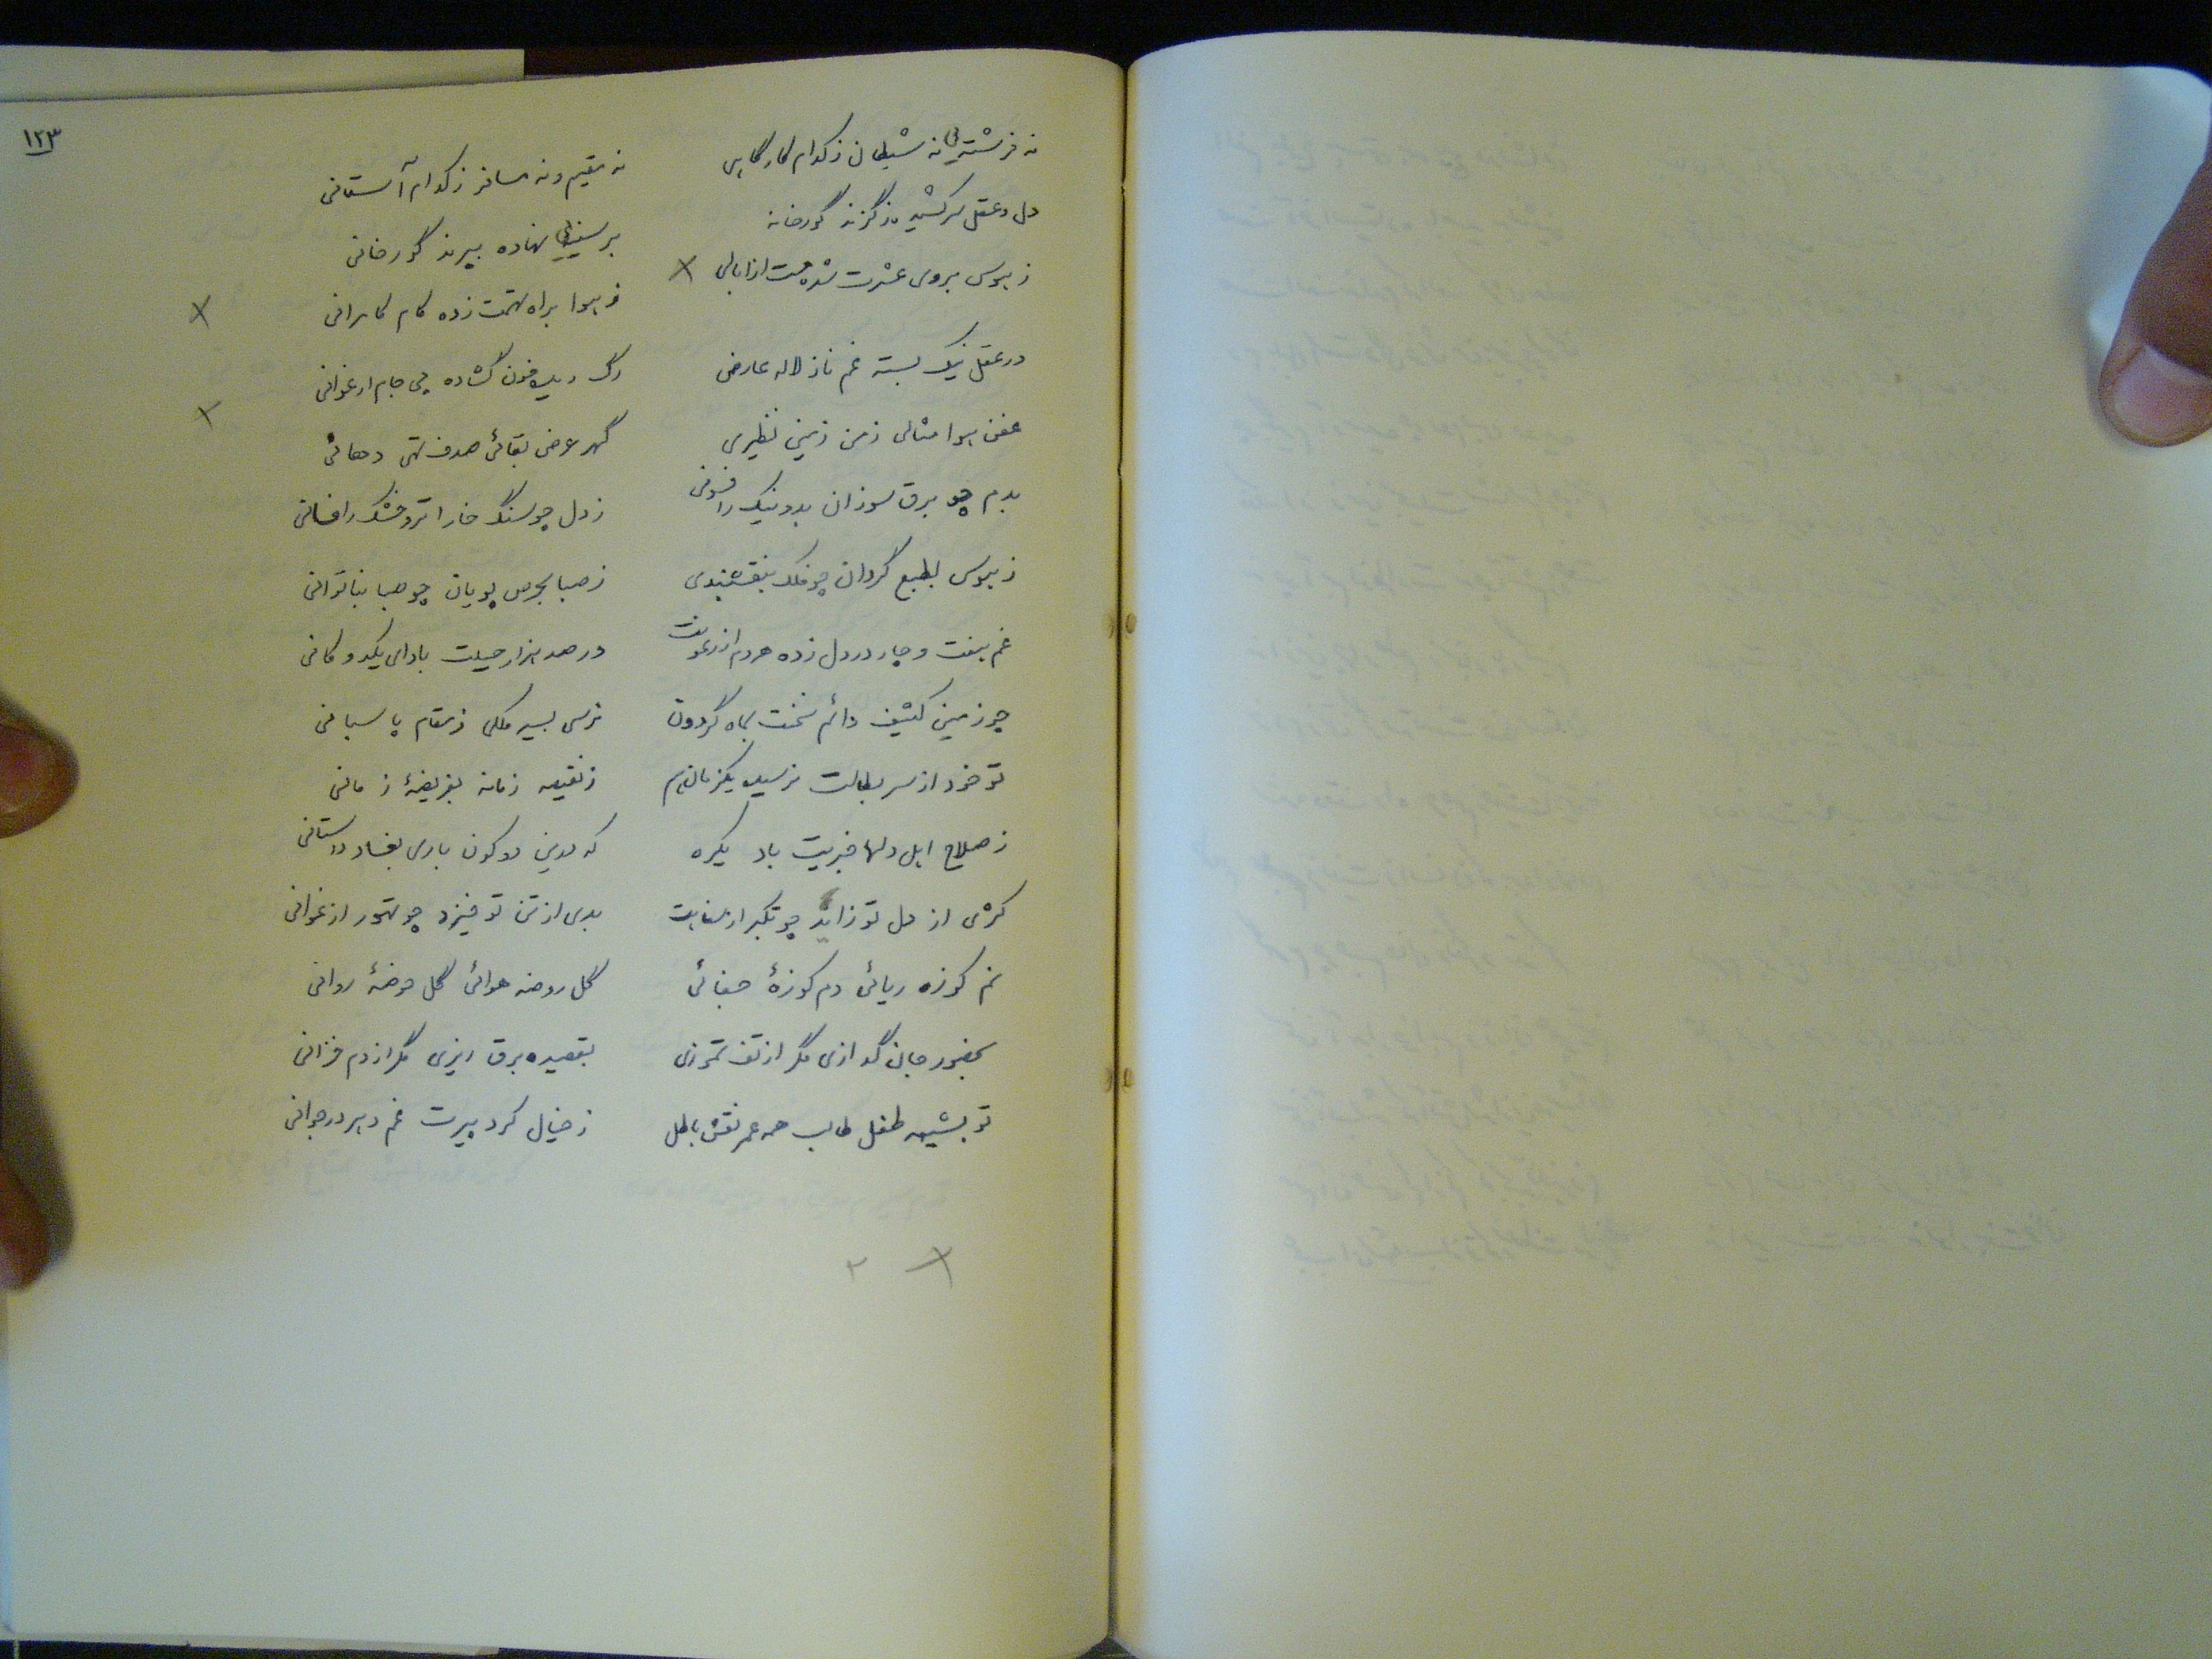 ۱۲۳
نه فرشته‌ئی نه شیطان ز کدام کارگاهی
نه مقیم و نه مسافر ز کدام آستانی
دل و عقل سرکشیده ز گزند گورخانه
بر سینه نهاده بپرند گورخانی
ز هوس بروی عشرت شده مست از ابالی
ز هوا براه تهمت زده کام کامرانی
در عقل نیک بسته غم ناز لاله عارض
رگ فنون گشاده می جام ارغوانی
عفن هوا مثالی زمن زمین نظیری
گهر عرض بقائی صدف تهی دهانی
بدم چو برق سوزان بد و نیک را فسونی
ز دل چو سنگ خارا تر و خشک را فسانی
ز هوس بطبع گردان چو فلک بنقشبندی
ز صبا بحرص پویان چو صبا بناتوانی
غم هفت و چار در دل زده هر دم از رعونت
در صد هزار حیلت بادای یکدوگانی
چو زمین کثیف دائم سخنت بماه گردون
نرسی بسیر ملکی ز مقام پاسبانی
تو خود از سر بطالت نرسیده یکزمان هم
ز زمانه بفریضهٔ زمانی
ز صلاح اهل دلها خبریت باد یکره
که درین دو کون باری بفساد داستانی
کژی از دل تو زاید چو تکبر از
بدی از تن تو خیزد چو تهور از غوانی
نم کوزه ریائی دم کوزهٔ جفائی
گل روضه هوائی گل حوضهٔ روانی
بحضور جان گدازی مگر از تف تموزی
بقصیده برق ریزی مگر از دم خزانی
تو بشیوه طفل طالب همه عمر نقش باطل
ز خیال کرد پیرت غم دهر در جوانی